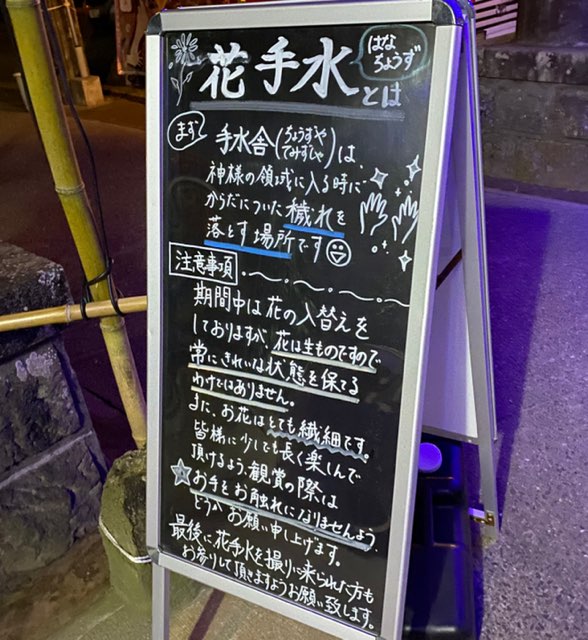 花手水とは
はな
ちょうず
まず
手水舎(ちょうずや
てみずしゃ)は、
神様の領域に入る時に
からだについた穢れを
落とす場所です
注意事項
期間中は花の入替えを
しておりますが、花は生ものですので
常にきれいな状態を保てる
わけではありません。
また、お花はとても繊細です。
皆様に少しでも長く楽しんで
頂けるよう、観賞の際は
☆お手をお触れになりませんよう
どうかお願い申し上げます。
最後に花手水を撮りに来られた方も
お参りして頂きますようお願い致します。